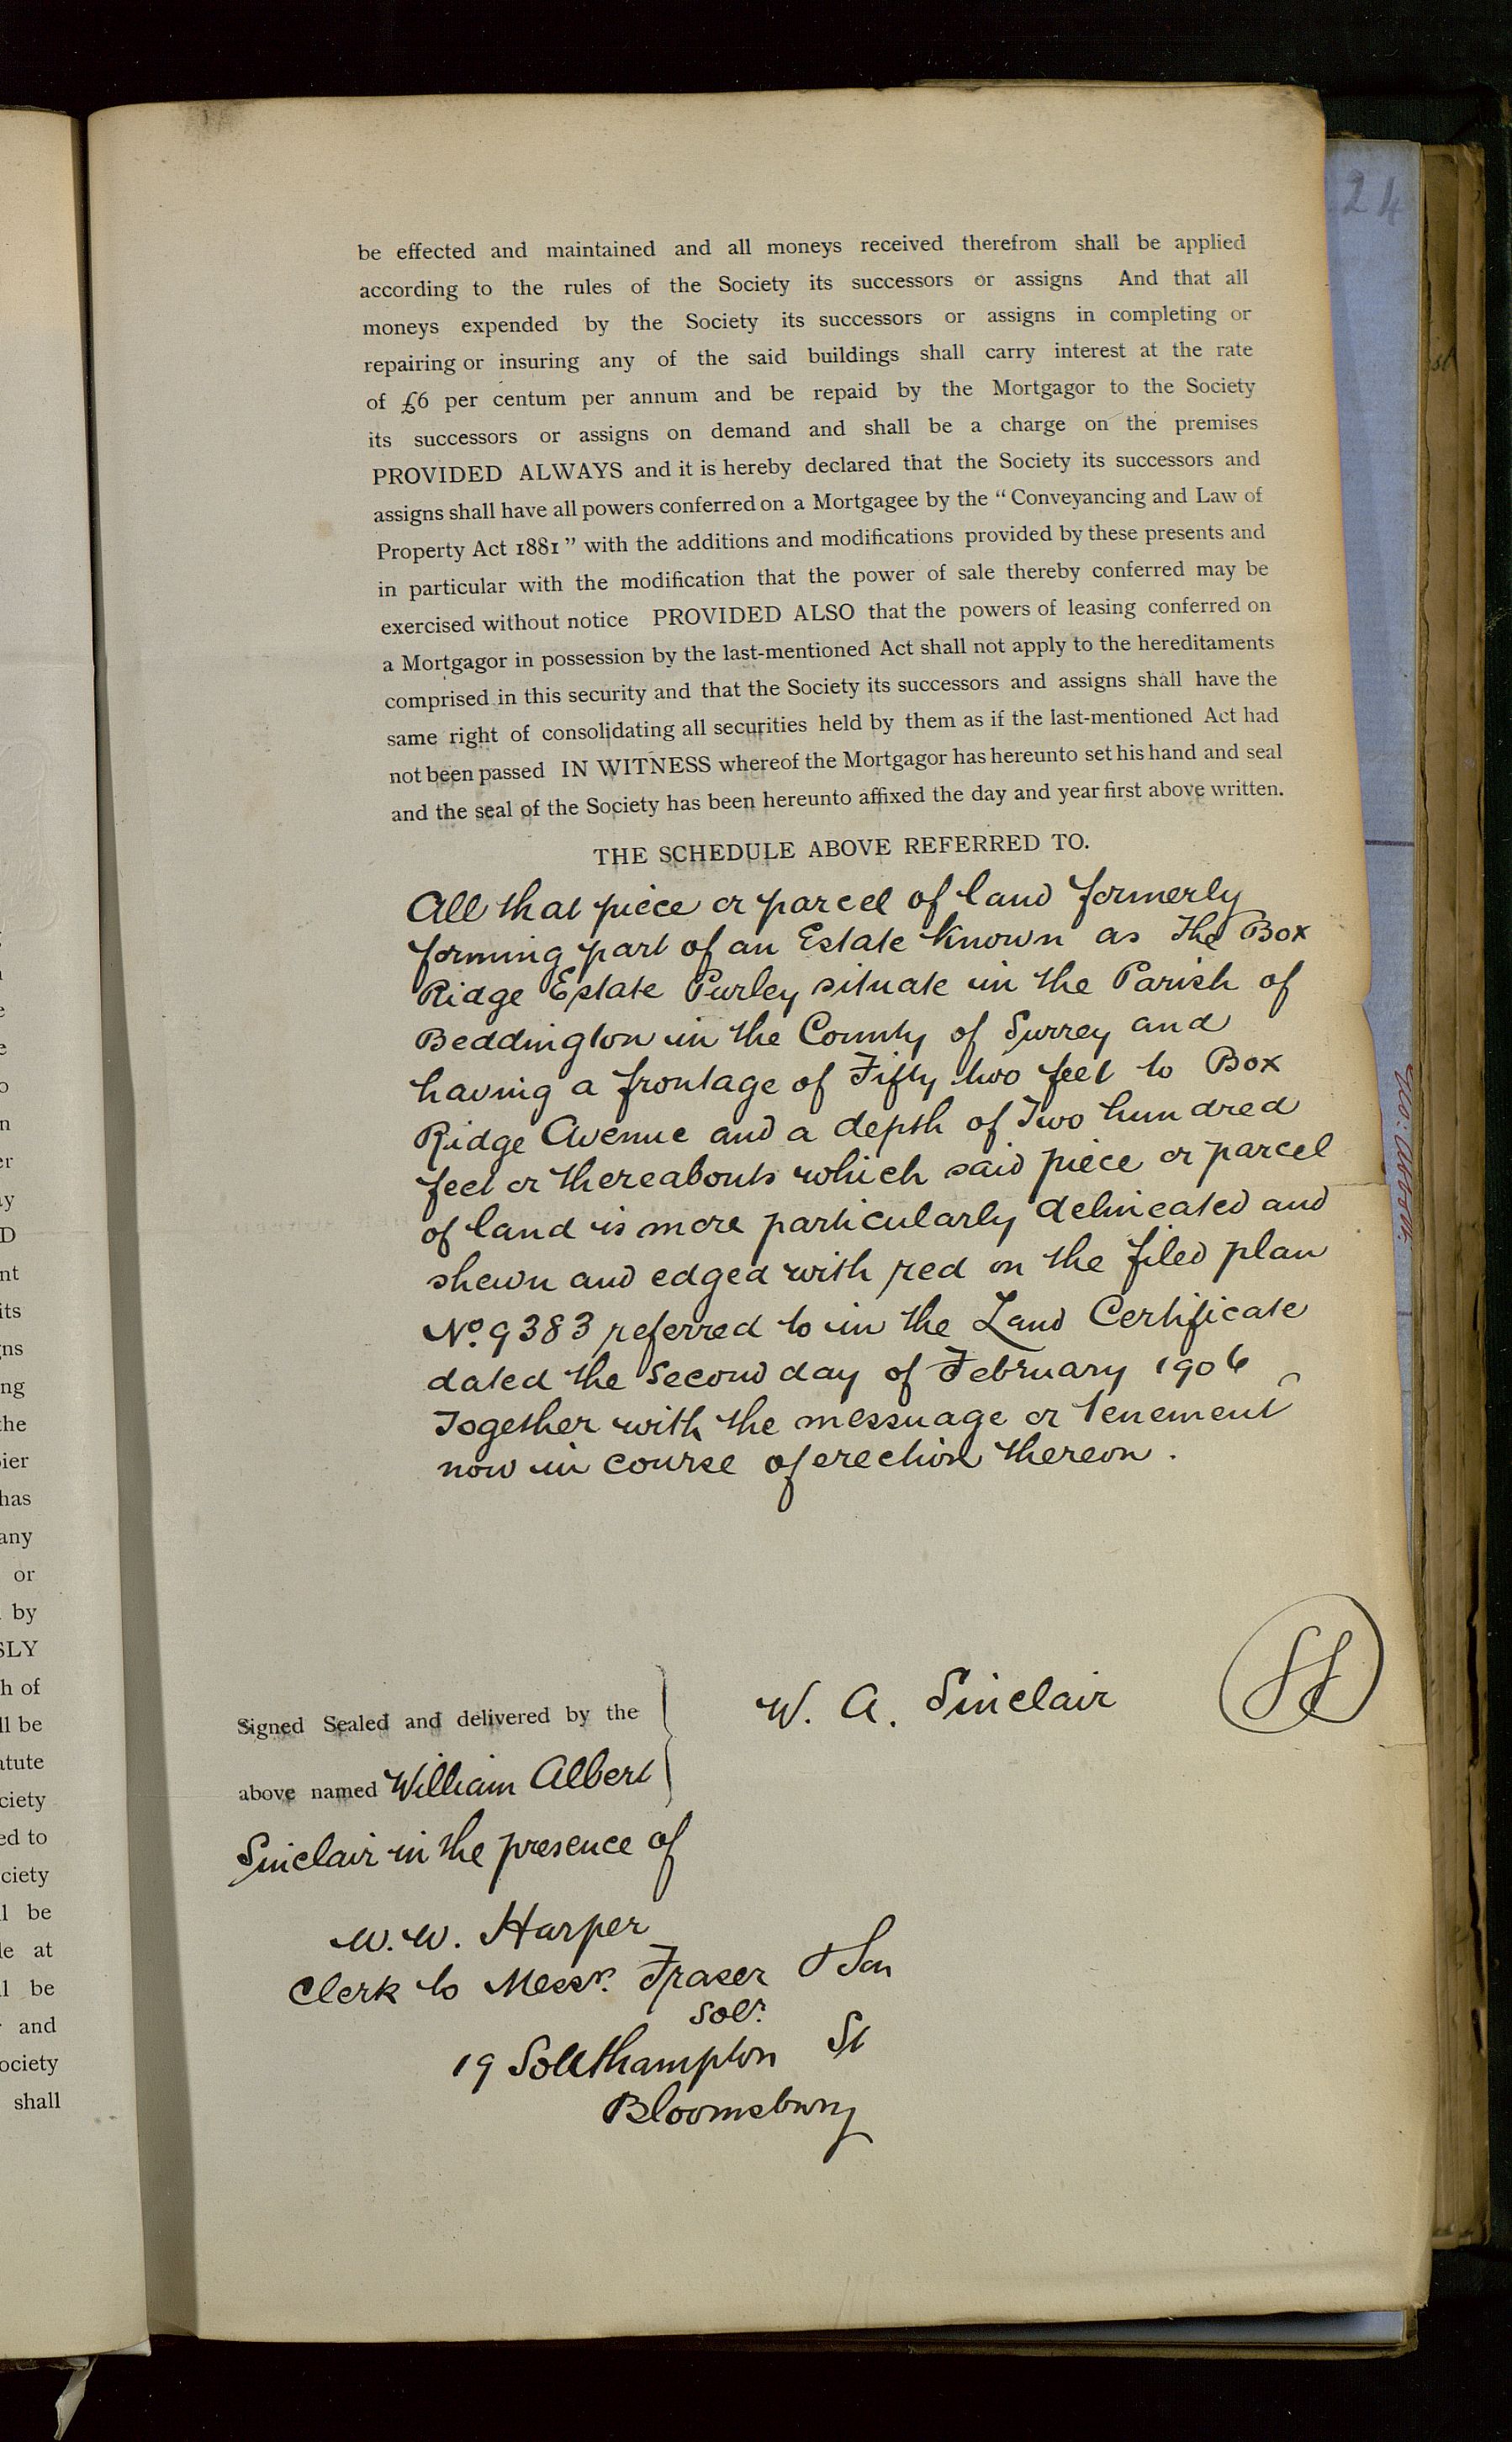 be effected and maintained and all moneys received therefrom shall be applied
according to the rules of the Society its successors or assigns And that all
moneys expended by the Society its successors or assigns in completing or
repairing or insuring any of the said buildings shall carry interest at the rate
of £6 per centum per annum and be repaid by the Mortgagor to the Society
its successors or assigns on demand and shall be a charge on the premises
PROVIDED ALWAYS and it is hereby declared that the Society its successors and
assigns shall have all powers conferred on a Mortgagee by the “Conveyancing and Law of
Property Act 1881” with the additions and modifications provided by these presents and
in particular with the modification that the power of sale thereby conferred may be
exercised without notice PROVIDED ALSO that the powers of leasing conferred on
a Mortgagor in possession by the last-mentioned Act shall not apply to the hereditaments
comprised in this security and that the Society its successors and assigns shall have the
same right of consolidating all securities held by them as if the last-mentioned Act had
not been passed IN WITNESS whereof the Mortgagor has hereunto set his hand and seal
and the seal of the Society has been hereunto affixed the day and year first above written.
THE SCHEDULE ABOVE REFERRED TO.
All that piece or parcel of land formerly
forming part of an Estate known as The Box
Ridge Estate Purley situate in the Parish of
Beddington in the County of Surrey and
having a frontage of Fifty two feet to Box
Ridge Avenue and a depth of Two hundred
feet or thereabouts which said piece or parcel
of land is more particularly delineated and
shewn and edged with red on the filed plan
No. 9383 referred to in the Land Certificate
dated the Second day of February 1906
Together with the messuage or tenement
now in course of erection thereon.
Signed Sealed and delivered by the
above named William Albert
Sinclair in the presence of
W. A. Sinclair
W. W. Harper
Clerk to Messrs. Fraser & Son
Solrs.
19 Southampton St
Bloomsbury
24
er
ay
D
nt
its
gns
ng
the
pier
has
any
or
by
SLY
h of
ll be
atute
ciety
ed to
ciety
l be
le at
l be
and
ociety
shall